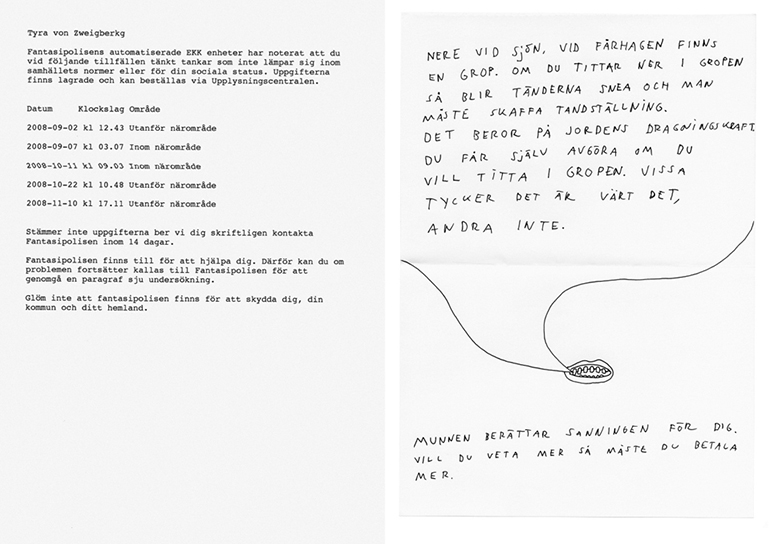 Tyra von Zweigberkg
Fantasipolisens automatiserade EKK enheter har noterat att du
vid följande tillfällen tänkt tankar som inte lämpar sig inom
samhällets normer eller för din sociala status. Uppgifterna
finns lagrade och kan beställas via Upplysningscentralen.
Datum Klockslag Område
2008-09-02 kl 12.43 Utanför närområde
2008-09-07 kl 03.07 Inom närområde
2008-10-11 kl 09.03 Inom närområde
2008-10-22 kl 10.48 Utanför närområde
2008-11-10 kl 17.11 Utanför närområde
Stämmer inte uppgifterna ber vi dig skriftligen kontakta
Fantasipolisen inom 14 dagar.
Fantasipolisen finns till för att hjälpa dig. Därför kan du om
problemen fortsätter kallas till Fantasipolisen för att
genomgå en paragraf sju undersökning.
Glöm inte att fantasipolisen finns för att skydda dig, din
kommun och ditt hemland.
NERE VID SJÖN, VID FÅRHAGEN FINNS
EN GROP. OM DU TITTAR NER I GROPEN
SÅ BLIR TÄNDERNA SNEA OCH MAN
MÅSTE SKAFFA TANDSTÄLLNING.
DET BEROR PÅ JORDENS DRAGNINGSKRAFT.
DU FÅR SJÄLV AVGÖRA OM DU
VILL TITTA I GROPEN. VISSA
TYCKER DET ÄR VÄRT DET,
ANDRA INTE.
MUNNEN BERÄTTAR SANNINGEN FÖR DIG.
VILL DU VETA MER SÅ MÅSTE DU BETALA
MER.